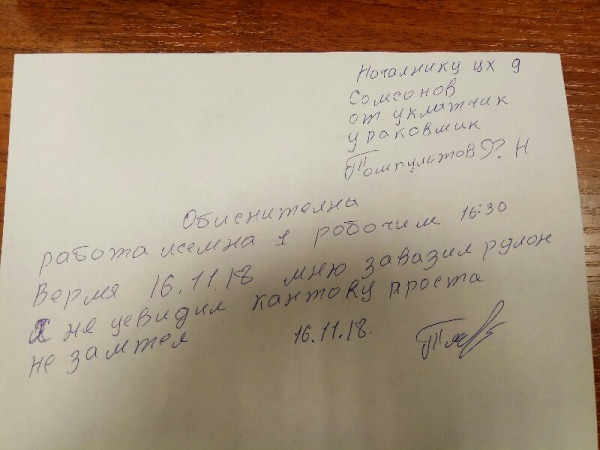 Началнику цх 9
Сомсонов
от уклатчик
упаковшик
Тошпулатов Ф. Н
Обиснителна
работа исемна 1 робочим 16:30
Вермя 16.11.18 мню завазил рулон
я не уевидил кантову проста
не замтел 16.11.18.